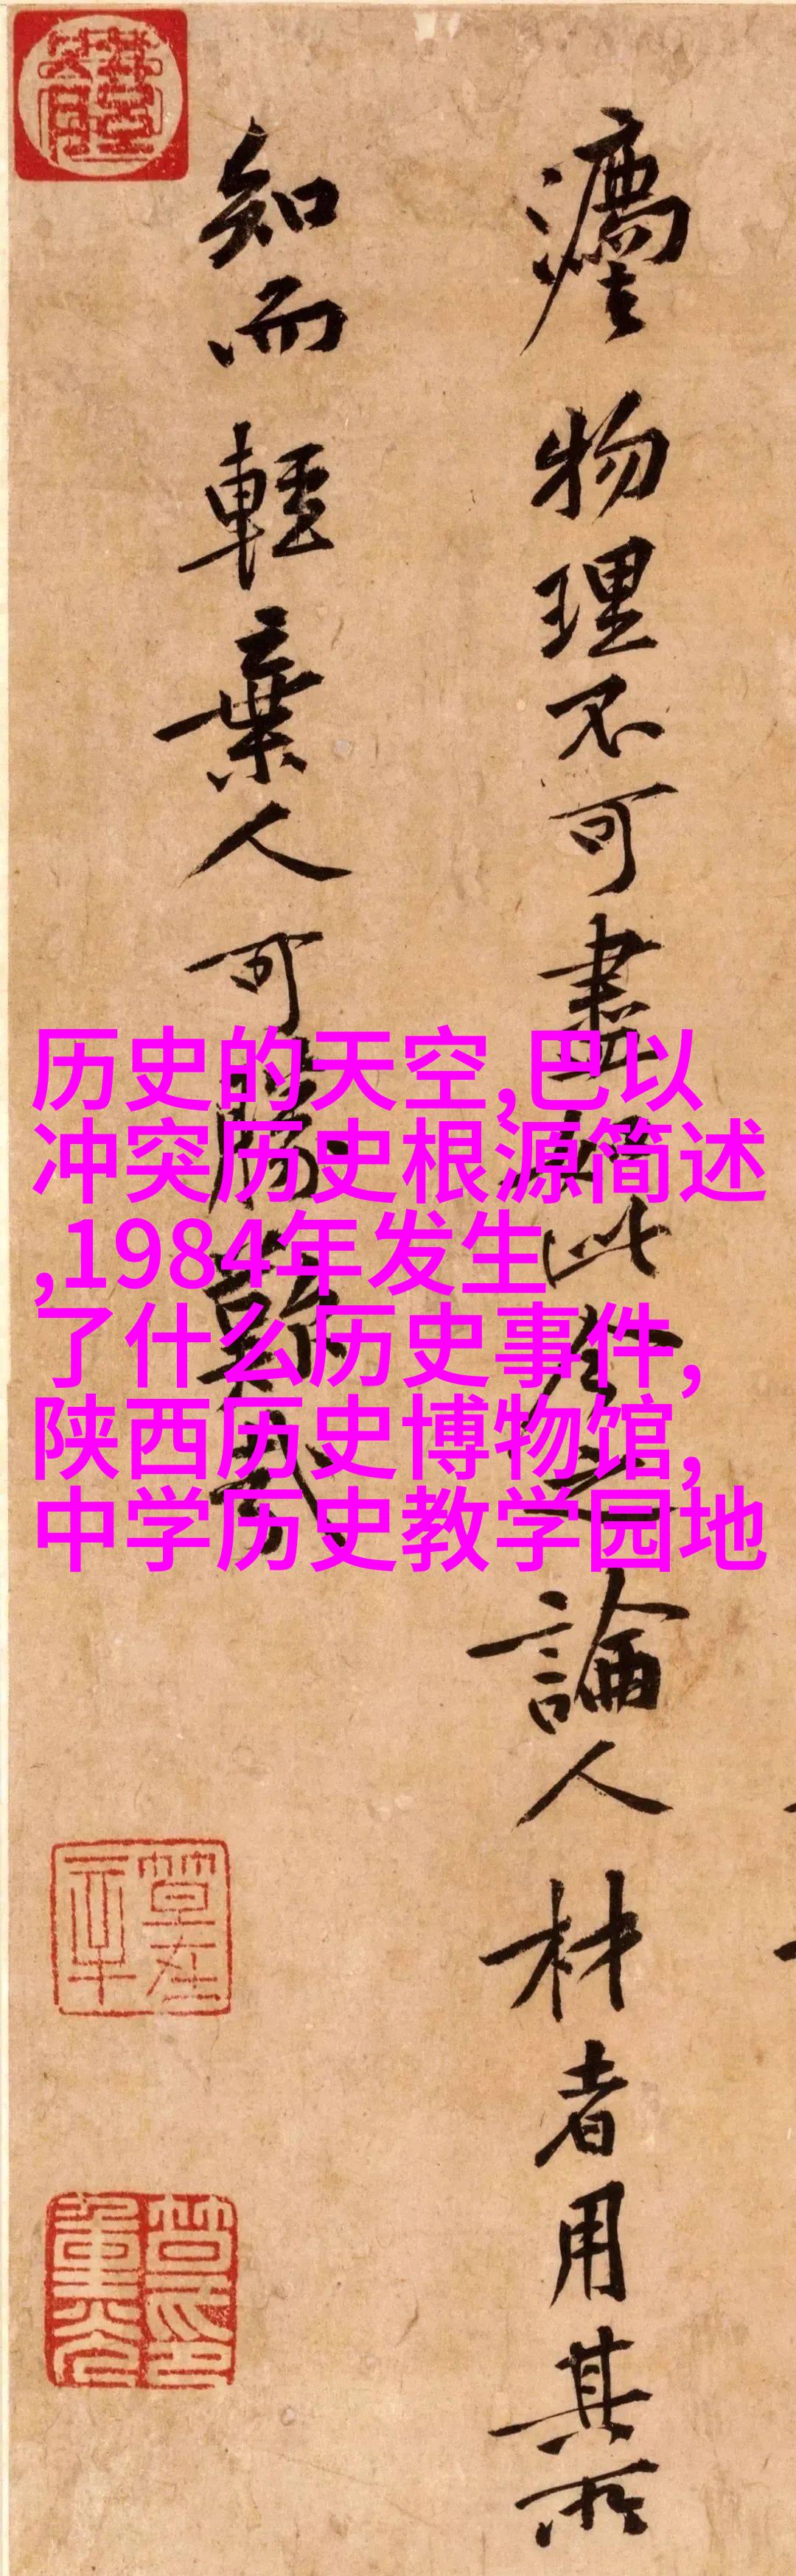 物理不可盡如此之論人材者用其所
知而輕棄人可勝歎哉
历史的天空,巴以
冲突历史根源简述
,1984年发生
了什么历史事件,
陕西历史博物馆,
中学历史教学园地